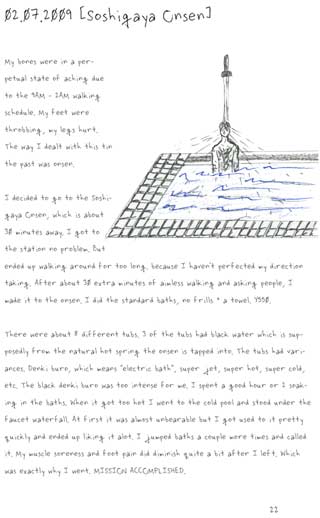 02.07.2009 [Soshigaya Onsen]
My bones were in a per-
petual state of aching due
to the 9AM - 2AM walking
schedule. My feet were
throbbing, my legs hurt.
The way I dealt with this tin
the past was onsen.
I decided to go to the Soshi-
gaya Onsen, which is about
30 minutes away. I got to
the station no problem. But
ended up walking around for too long, because I haven't perfected my direction
taking. After about 30 extra minutes of aimless walking and asking people, I
made it to the onsen. I did the standard baths, no frills * a towel. Y550.
There were about 8 different tubs. 3 of the tubs had black water which is sup-
posedly from the natural hot spring the onsen is tapped into. The tubs had vari-
ances. Denki buro, which means "electric bath", super jet, super hot, super cold,
etc. The black denki buro was too intense for me. I spent a good hour or 2 soak-
ing in the baths. When it got too hot I went to the cold pool and stood under the
faucet waterfall. At first it was almost unbearable but I got used to it pretty
quickly and ended up liking it alot. I jumped baths a couple more times and called
it. My muscle soreness and foot pain did diminish quite a bit after I left. Which
was exactly why I went. MISSION ACCOMPLISHED.
22